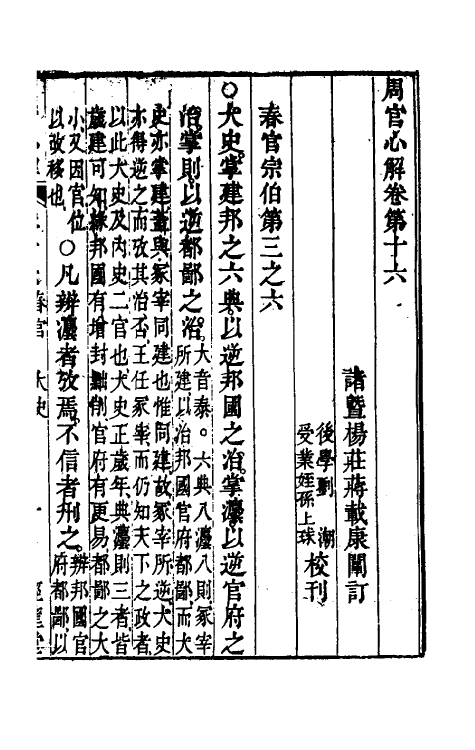 周官心解卷第十六
諸暨楊莊蔣載康闡訂
後學劉 湖
受業姪孫上球
校刊
春官宗伯第三之六
○大史掌建邦之六典以逆邦國之治掌灋以逆官府之
治掌則以逆都鄙之治
大音泰○六典八灋八則冢宰
所建以治邦國官府都鄙而大
史亦掌建蓋與冢宰同建也惟同建故冢宰所逆大史
亦得逆之而攷其治否王任冢宰而仍知天下之政者
以此大史及內史二官也大史正歲年典灋則三者皆
歲建可知緣邦國有增封黜削官府有更易都鄙之大
小又因官位
以改移也
○凡辨灋者攷焉不信者刑之
辨邦國官
府都鄙以
春官 大史